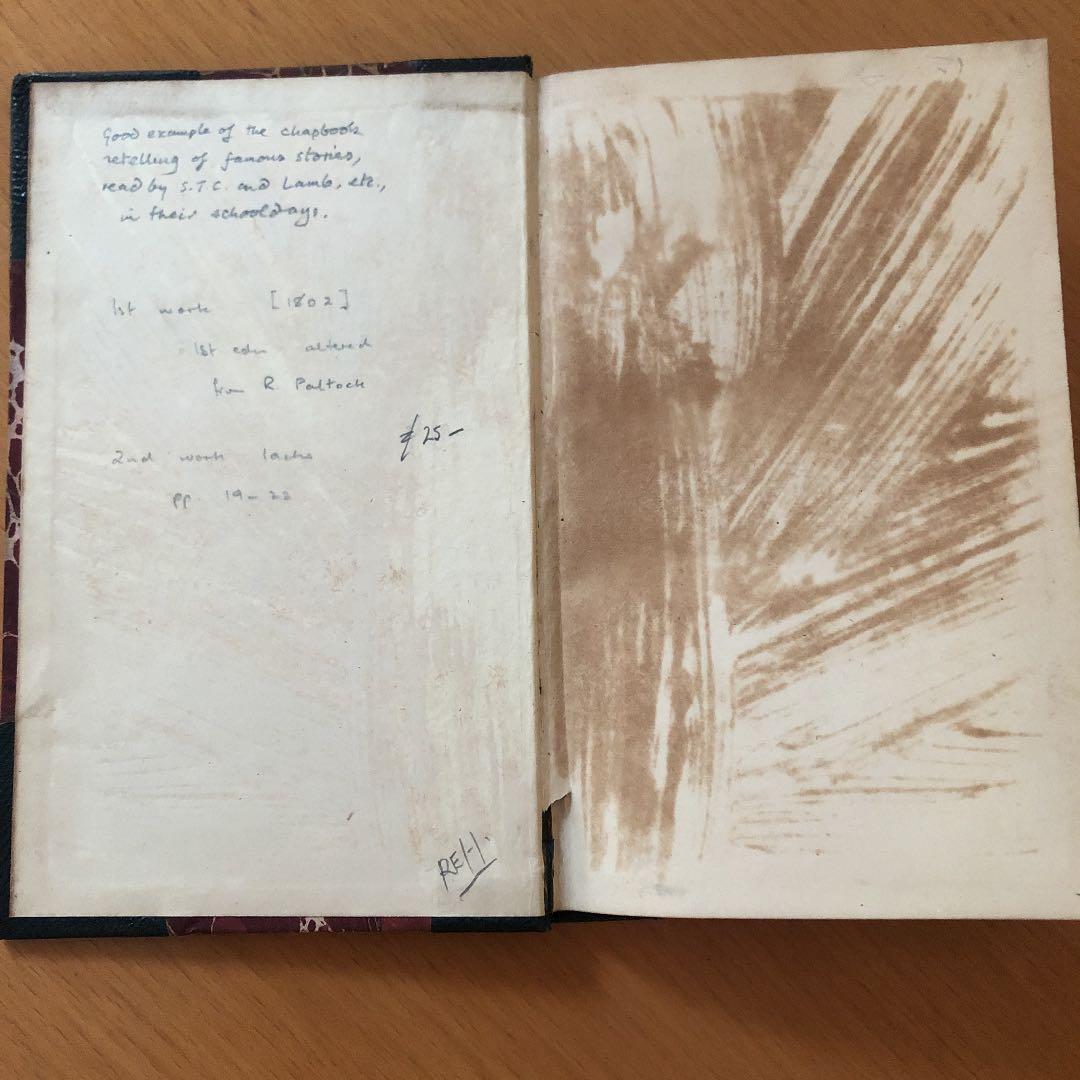 Good example of the chapbook
retelling of famous stories,
read by S.T.C. and Lamb, etc.,
in their schooldays.
1st work [1802]
1st edn altered
from R. Paltock
£25-
2nd work lacks
pp. 19-22